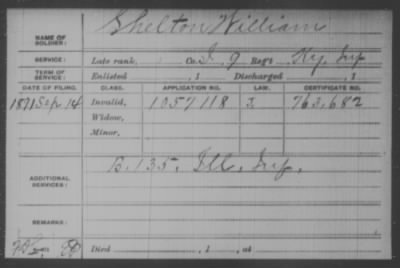 Shelton William
NAME OF SOLDIER:
SERVICE: Late rank, Co. I, 9 Reg't Ky. Inf
TERM OF SERVICE: Enlisted , 1 Discharged , 1
DATE OF FILING. CLASS. APPLICATION NO. LAW. CERTIFICATE NO.
1891 Sep 14 Invalid, 1057118 763,682
Widow,
Minor,
B. 135. Ill. Inf.
ADDITIONAL SERVICES:
REMARKS:
Died , 1 , at